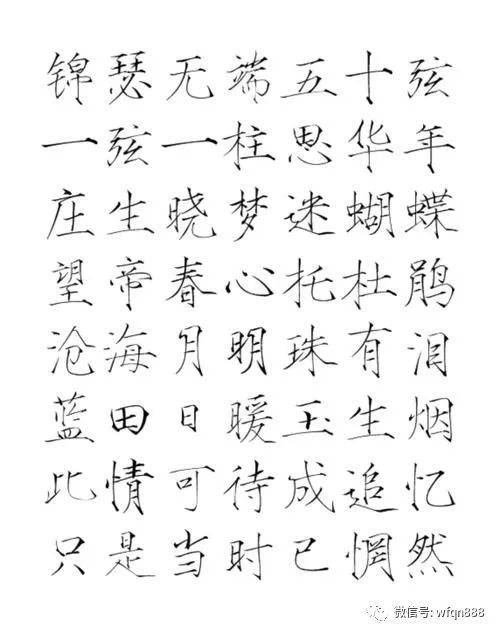 锦瑟无端五十弦
一弦一柱思华年
庄生晓梦迷蝴蝶
望帝春心托杜鹃
沧海月明珠有泪
蓝田日暖玉生烟
此情可待成追忆
只是当时已惘然
微信号: wfqn888